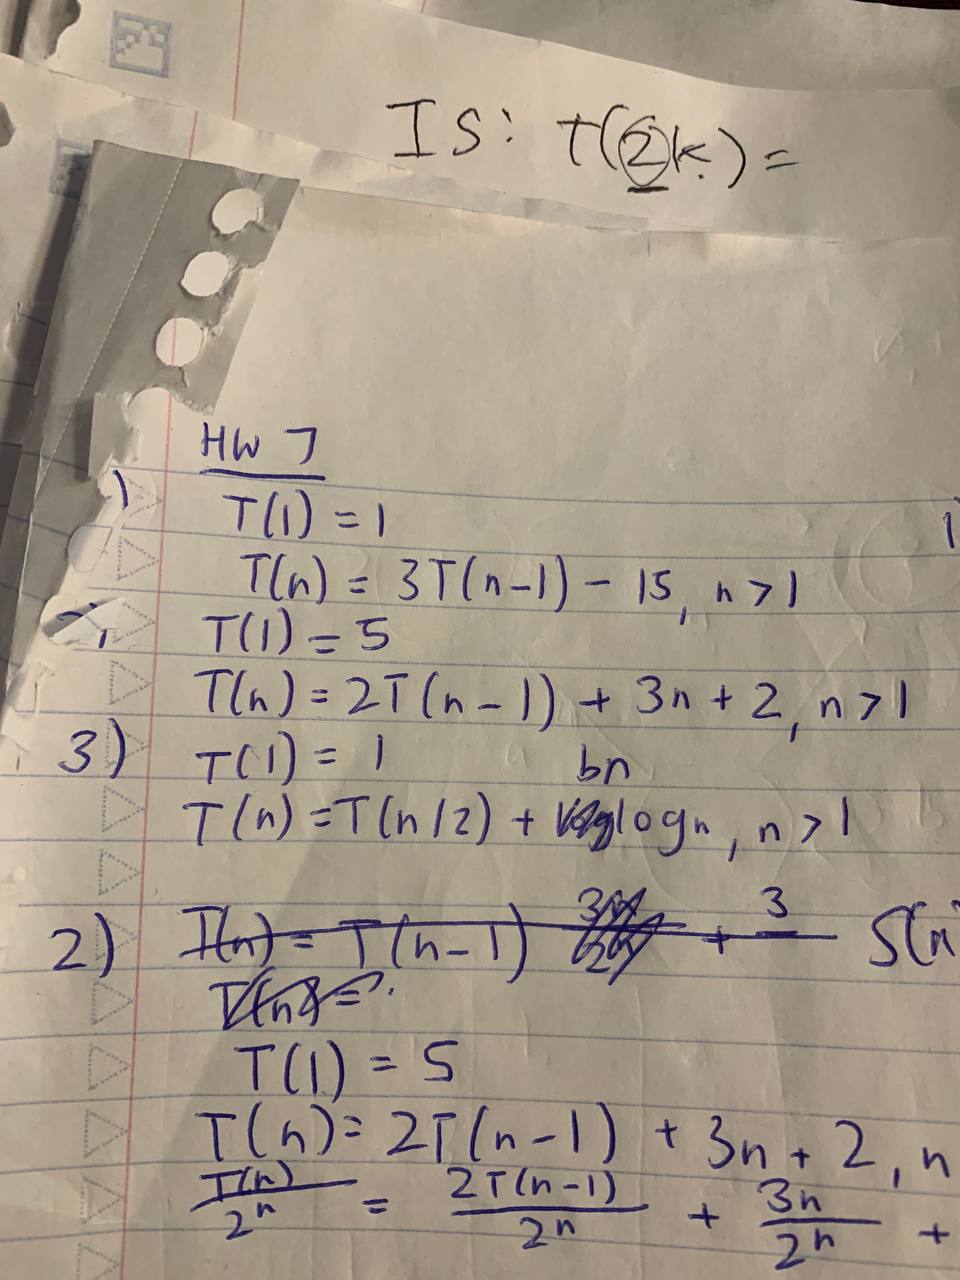 IS: T(2k) =
HW 7
1)
T(1) = 1
T(n) = 3T(n-1) - 15, n > 1
T(1) = 5
T(n) = 2T(n-1) + 3n + 2, n > 1
3) T(1) = 1 bn
T(n) = T(n/2) + logn, n > 1
2) T(n) = T(n-1) + 3 S(n
T(n) =
T(1) = 5
T(n) = 2T(n-1) + 3n + 2, n
T(n)/2^n = 2T(n-1)/2^n + 3n/2^n +